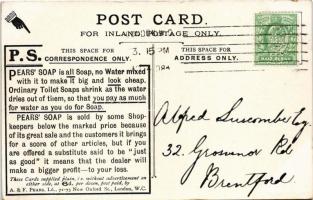 POST CARD.
FOR INLAND POSTAGE ONLY.
P.S.
THIS SPACE FOR
CORRESPONDENCE ONLY.
3. 15 PM
THIS SPACE FOR
ADDRESS ONLY.
PEARS' SOAP is all Soap, no Water mixed
with it to make it big and look cheap.
Ordinary Toilet Soaps shrink as the water
dries out of them, so that you pay as much
for water as you do for Soap.
PEARS' SOAP is sold by some Shop-
keepers below the marked price because
of its great sale and the customers it brings
for a score of other articles, but if you
are offered a substitute said to be "just
as good" it means that the dealer will
make a bigger profit—to your loss.
These Cards supplied plain, i.e. without advertisement on
either side, at 6d. per dozen, post paid, by
A. & F. PEARS, Ld., 71-75 New Oxford St., London, W.C.
Alfred Luscombe Esq
32. Grosvenor Rd
Brentford